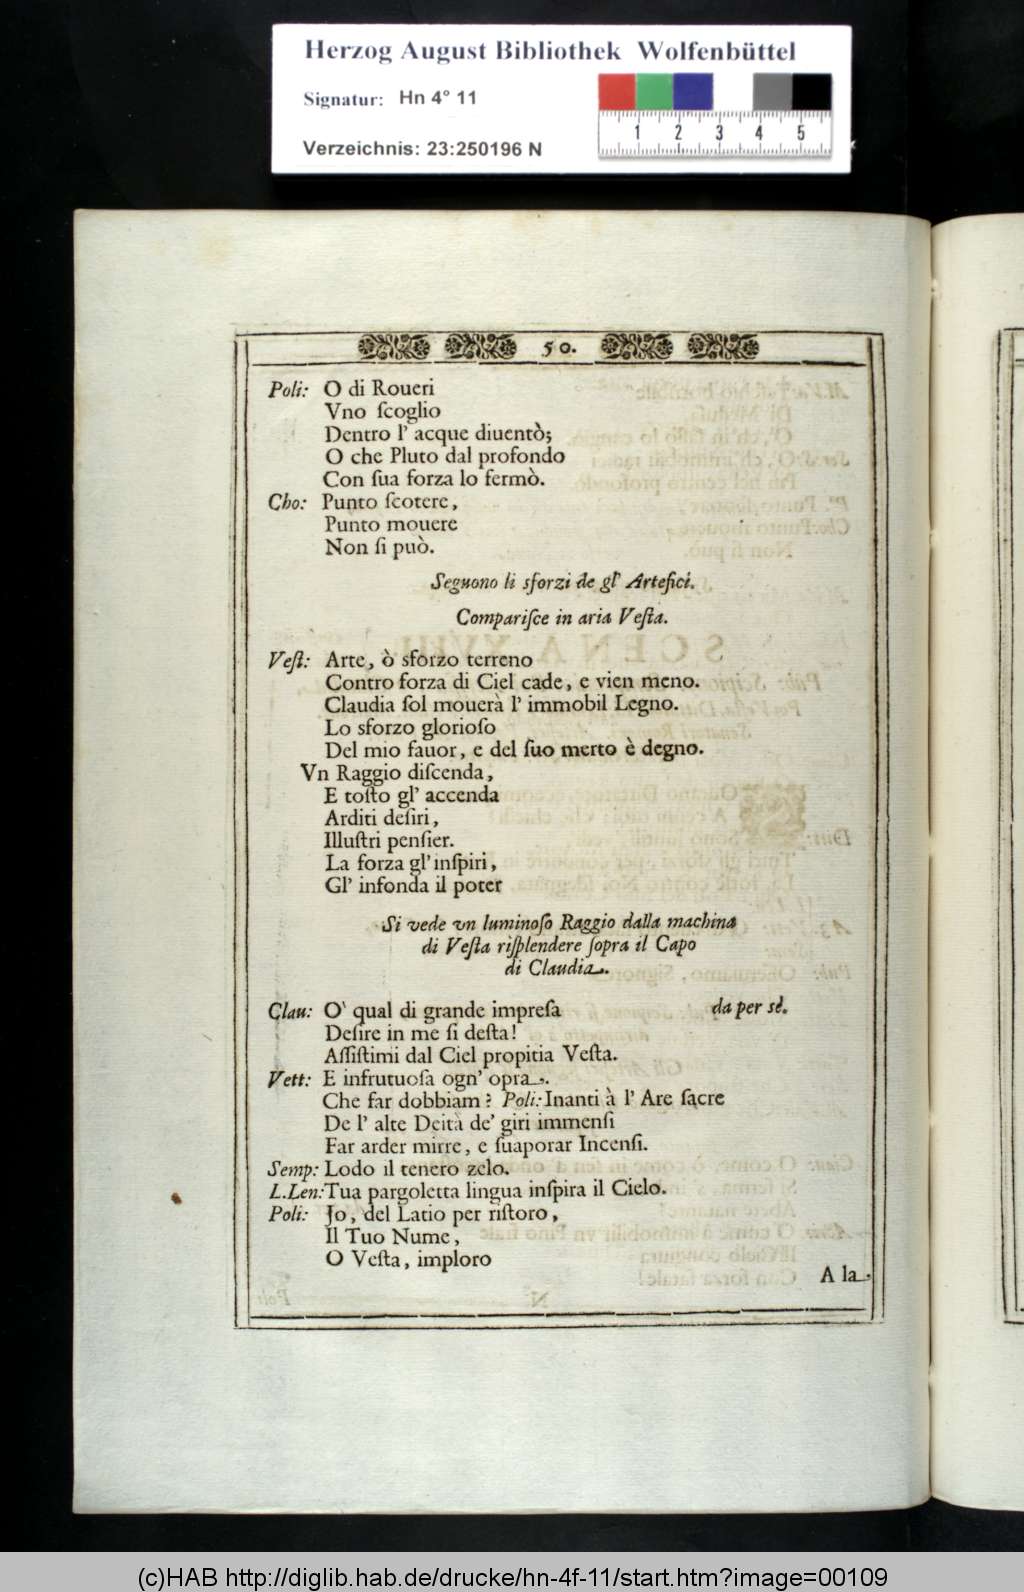 Herzog August Bibliothek Wolfenbüttel
Signatur: Hn 4° 11
Verzeichnis: 23:250196 N
1 2 3 4 5
50.
Poli: O di Roueri
Vno ſcoglio
Dentro l' acque diuentò;
O che Pluto dal profondo
Con ſua forza lo fermò.
Cho: Punto ſcotere,
Punto mouere
Non ſi può.
Seguono li sforzi de gl' Artefici.
Compariſce in aria Veſta.
Veſt: Arte, ò sforzo terreno
Contro forza di Ciel cade, e vien meno.
Claudia ſol mouerà l' immobil Legno.
Lo sforzo glorioſo
Del mio fauor, e del ſuo merto è degno.
Vn Raggio diſcenda,
E toſto gl' accenda
Arditi deſiri,
Illuſtri penſier.
La forza gl' inſpiri,
Gl' infonda il poter
Si vede vn luminoſo Raggio dalla machina
di Veſta riſplendere ſopra il Capo
di Claudia.
Clau: O' qual di grande impreſa da per sè.
Deſire in me ſi deſta!
Aſſiſtimi dal Ciel propitia Veſta.
Vett: E infrutuoſa ogn' opra.
Che far dobbiam? Poli: Inanti à l' Are ſacre
De l' alte Deità de' giri immenſi
Far arder mirre, e ſuaporar Incenſi.
Semp: Lodo il tenero zelo.
L.Len: Tua pargoletta lingua inſpira il Cielo.
Poli: Jo, del Latio per riſtoro,
Il Tuo Nume,
O Veſta, imploro
A la
(c)HAB http://diglib.hab.de/drucke/hn-4f-11/start.htm?image=00109